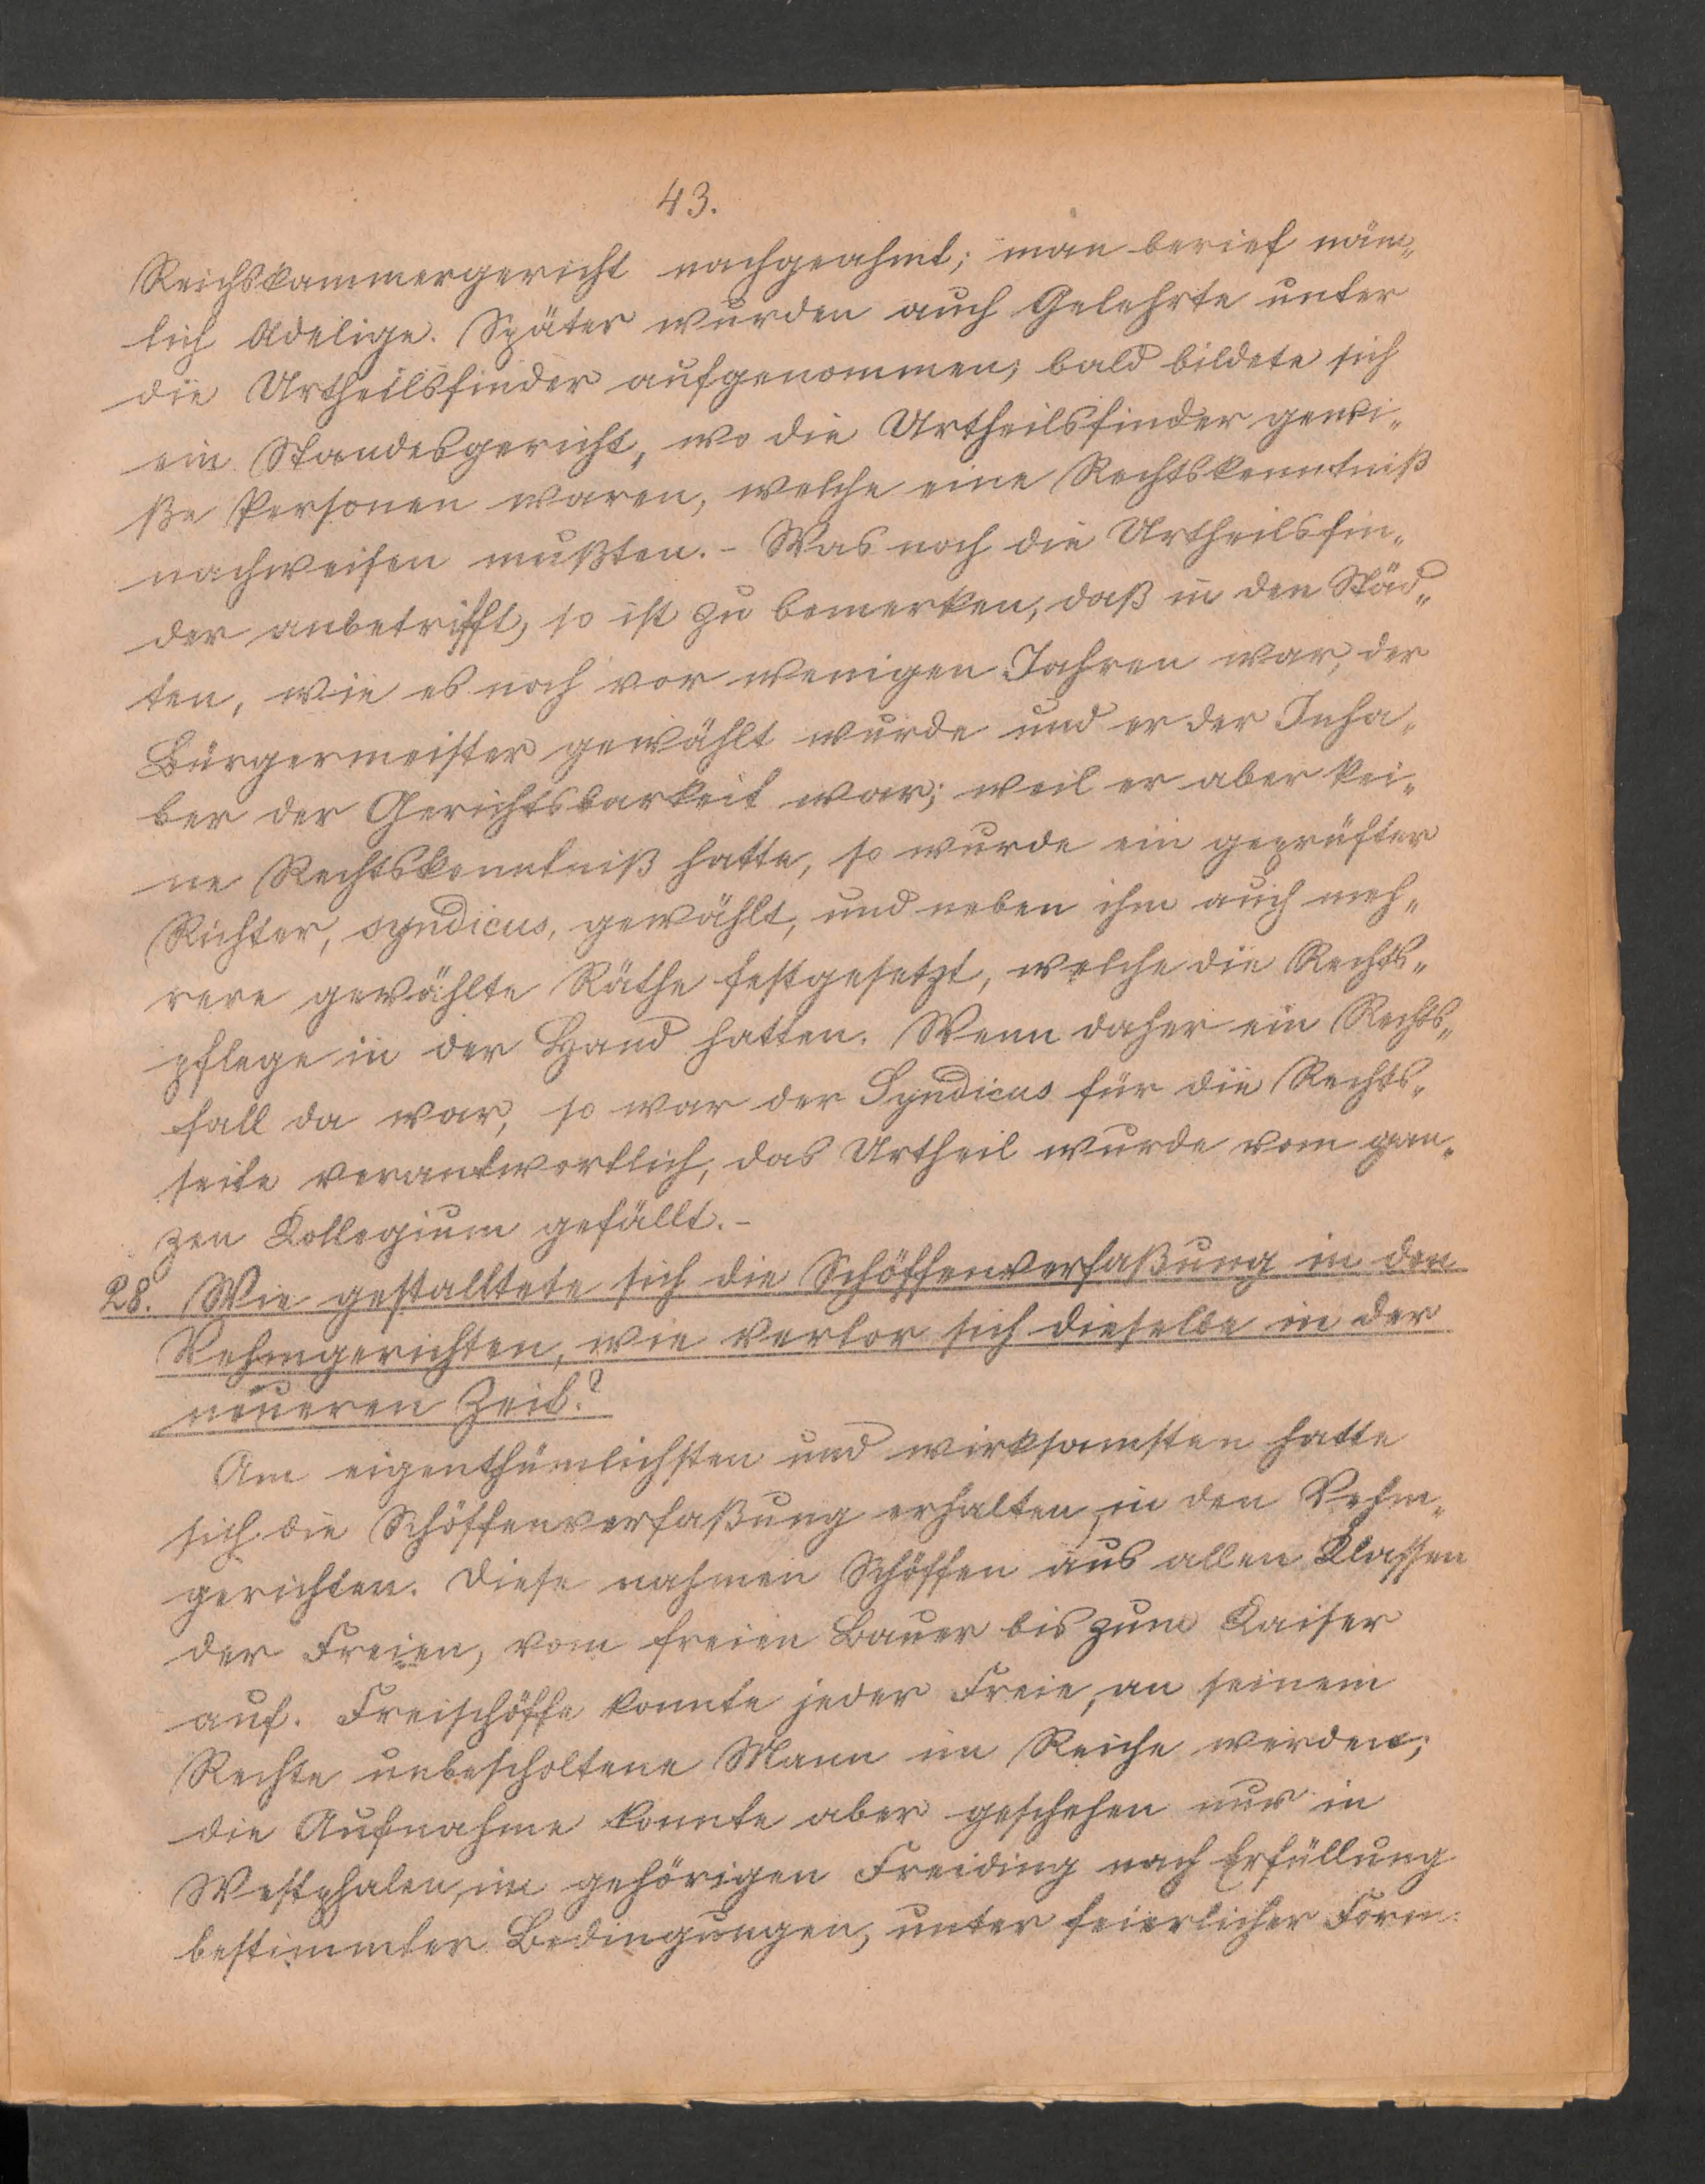 43.
Reichskammergericht nachgeahmt; man berief näm„
lich Adelige. Später wurden auch Gelehrte unter
die Urtheilsfinder aufgenommen; bald bildete sich
ein Standesgericht, wo die Urtheilsfinder gewi„
ße Personen waren, welche eine Rechtskenntniß
nachweisen mußten. - Was noch die Urtheilsfin„
der anbetrifft, so ist zu bemerken, daß in den Städ„
ten, wie es noch vor wenigen Jahren war, der
Bürgermeister gewählt wurde und er der Inha„
ber der Gerichtsbarkeit war; weil er aber kei„
ne Rechtskenntniß hatte, so wurde ein geprüfter
Richter, syndicus, gewählt, und neben ihm auch meh„
rere gewählte Räthe festgesetzt, welche die Rechts„
pflege in der Hand hatten. Wenn daher ein Rechts„
fall da war, so war der Syndicus für die Rechts„
seite verantwortlich, das Urtheil wurde vom gan„
zen Kollegium gefällt. -
28. Wie gestalltete sich die Schöffenverfaßung in den
Vehmgerichten, wie verlor sich dieselbe in der
neueren Zeit?
Am eigenthümlichsten und wirksamsten hatte
sich die Schöffenverfaßung erhalten, in den Vehm„
gerichten. Diese nahmen Schöffen aus allen Klassen
der Freien, vom freien Bauer bis zum Kaiser
auf. Freischöffe konnte jeder Freie, an seinem
Rechte unbescholtene Mann im Reiche werden;
die Aufnahme konnte aber geschehen nur in
Westphalen, im gehörigen Freiding nach Erfüllung
bestimmter Bedingungen, unter feierlicher Form.